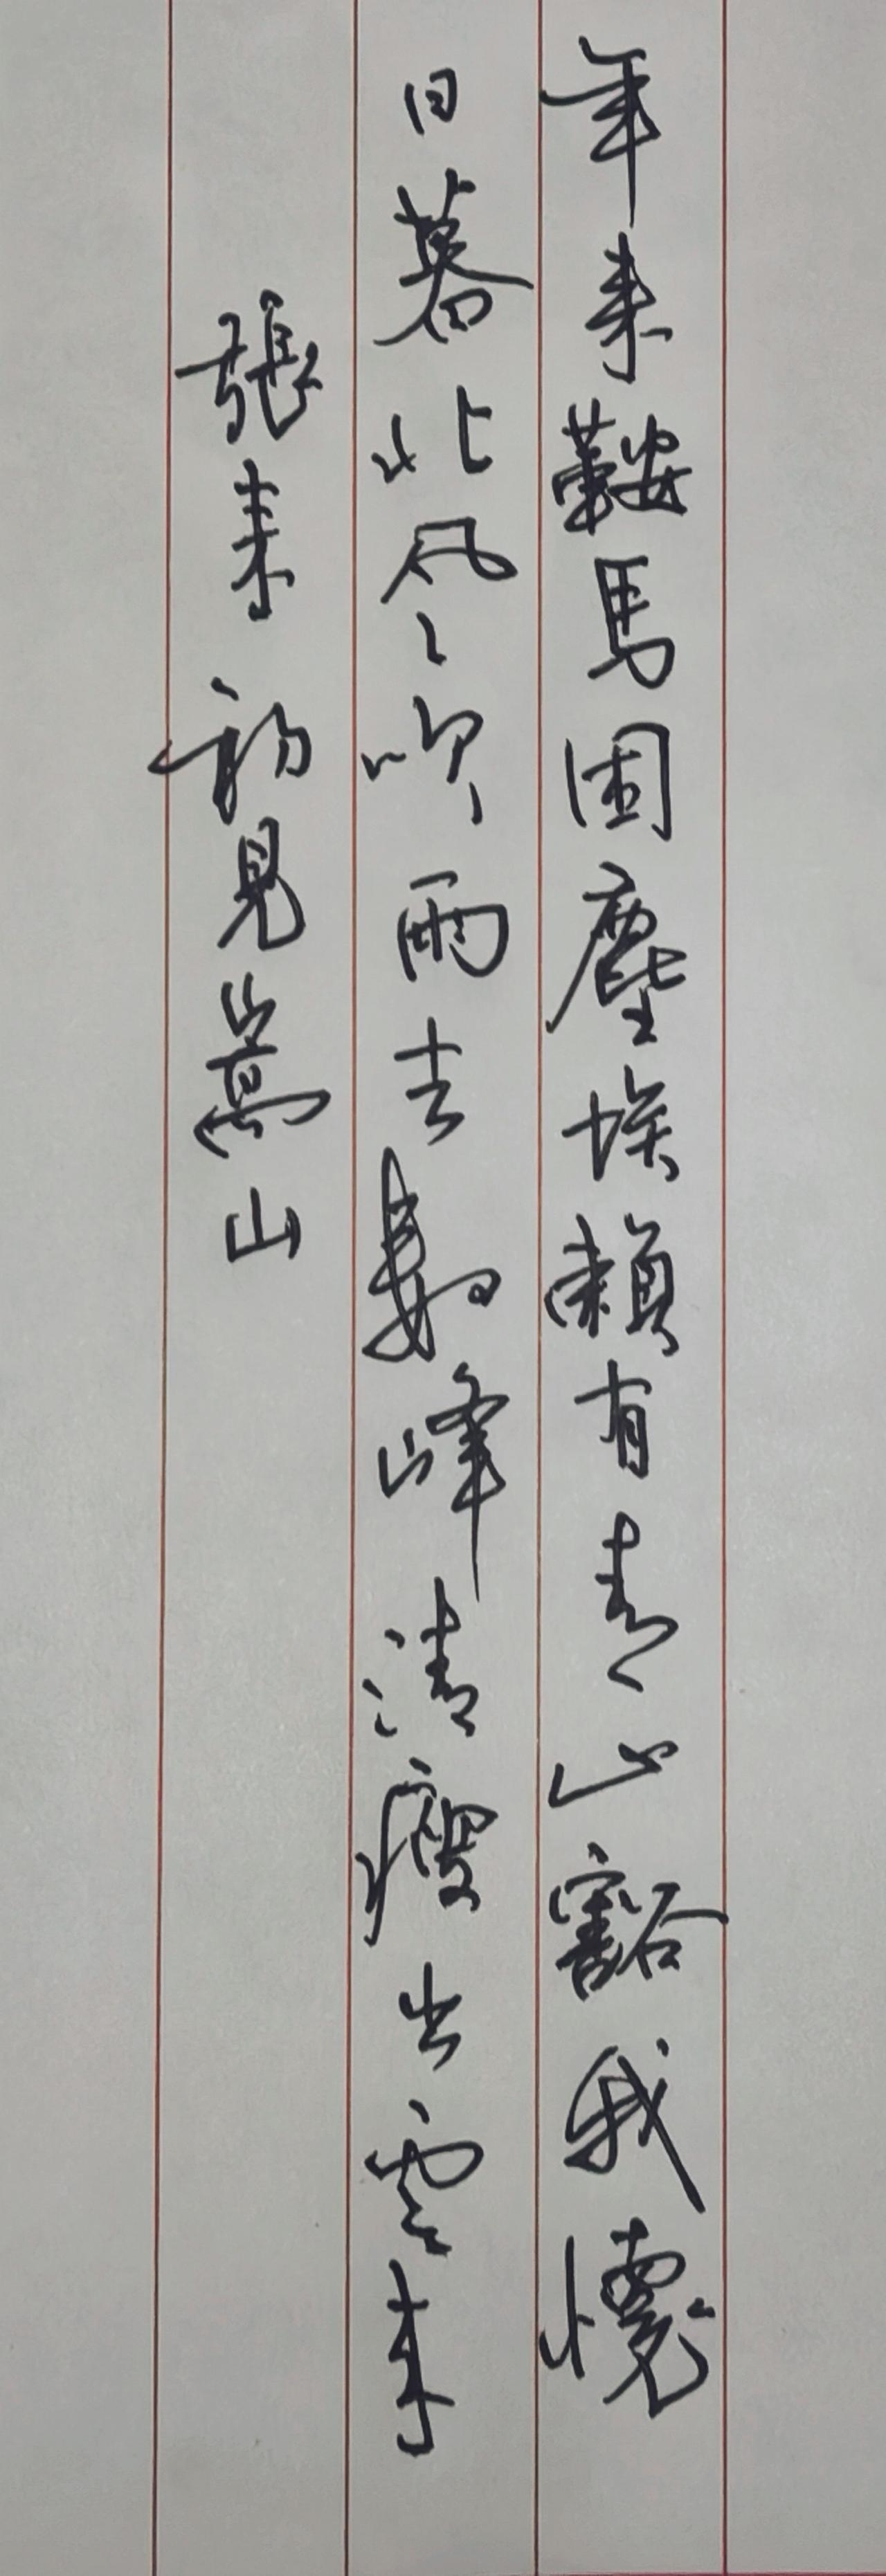 年来鞍馬困塵埃賴有青山豁我懷
日暮北風吹雨去數峰清瘦出雲来
張耒初見嵩山